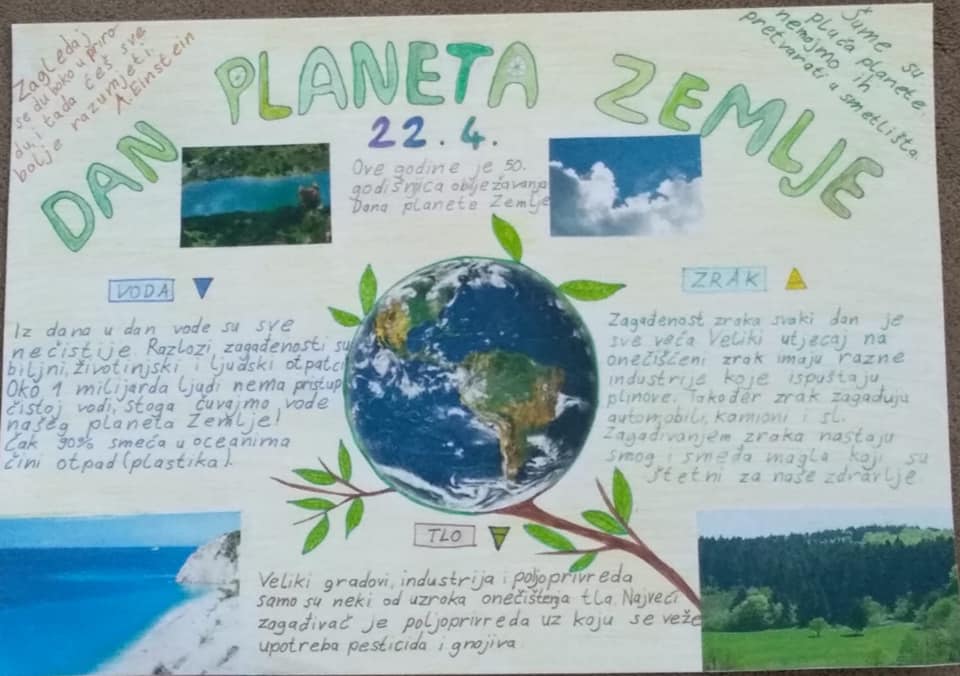 Zagledaj
se duboko u priro
du, i tada ćeš sve
bolje razumjeti.
A. Einstein
DAN PLANETA ZEMLJE
22.4.
Šume su
pluća planete,
nemojmo ih
pretvarati u smetlišta.
Ove godine je 50.
godišnjica obilježavanja
Dana planete Zemlje
VODA
Iz dana u dan vode su sve
nečistije. Razlozi zagađenosti su
biljni, životinjski i ljudski otpatci
Oko 1 milijarda ljudi nema pristup
čistoj vodi, stoga čuvajmo vode
našeg planeta Zemlje!
Čak 90% smeća u oceanima
čini otpad (plastika).
ZRAK
Zagađenost zraka svaki dan je
sve veća Veliki utjecaj na
onečišćeni zrak imaju razne
industrije koje ispuštaju
plinove. Također zrak zagađuju
automobili, kamioni i sl.
Zagađivanjem zraka nastaju
smog i smeđa magla koji su
štetni za naše zdravlje.
TLO
Veliki gradovi, industrija i poljoprivreda
samo su neki od uzroka onečištenja tla. Najveći
zagađivač je poljoprivreda uz koju se veže
upotreba pesticida i gnojiva